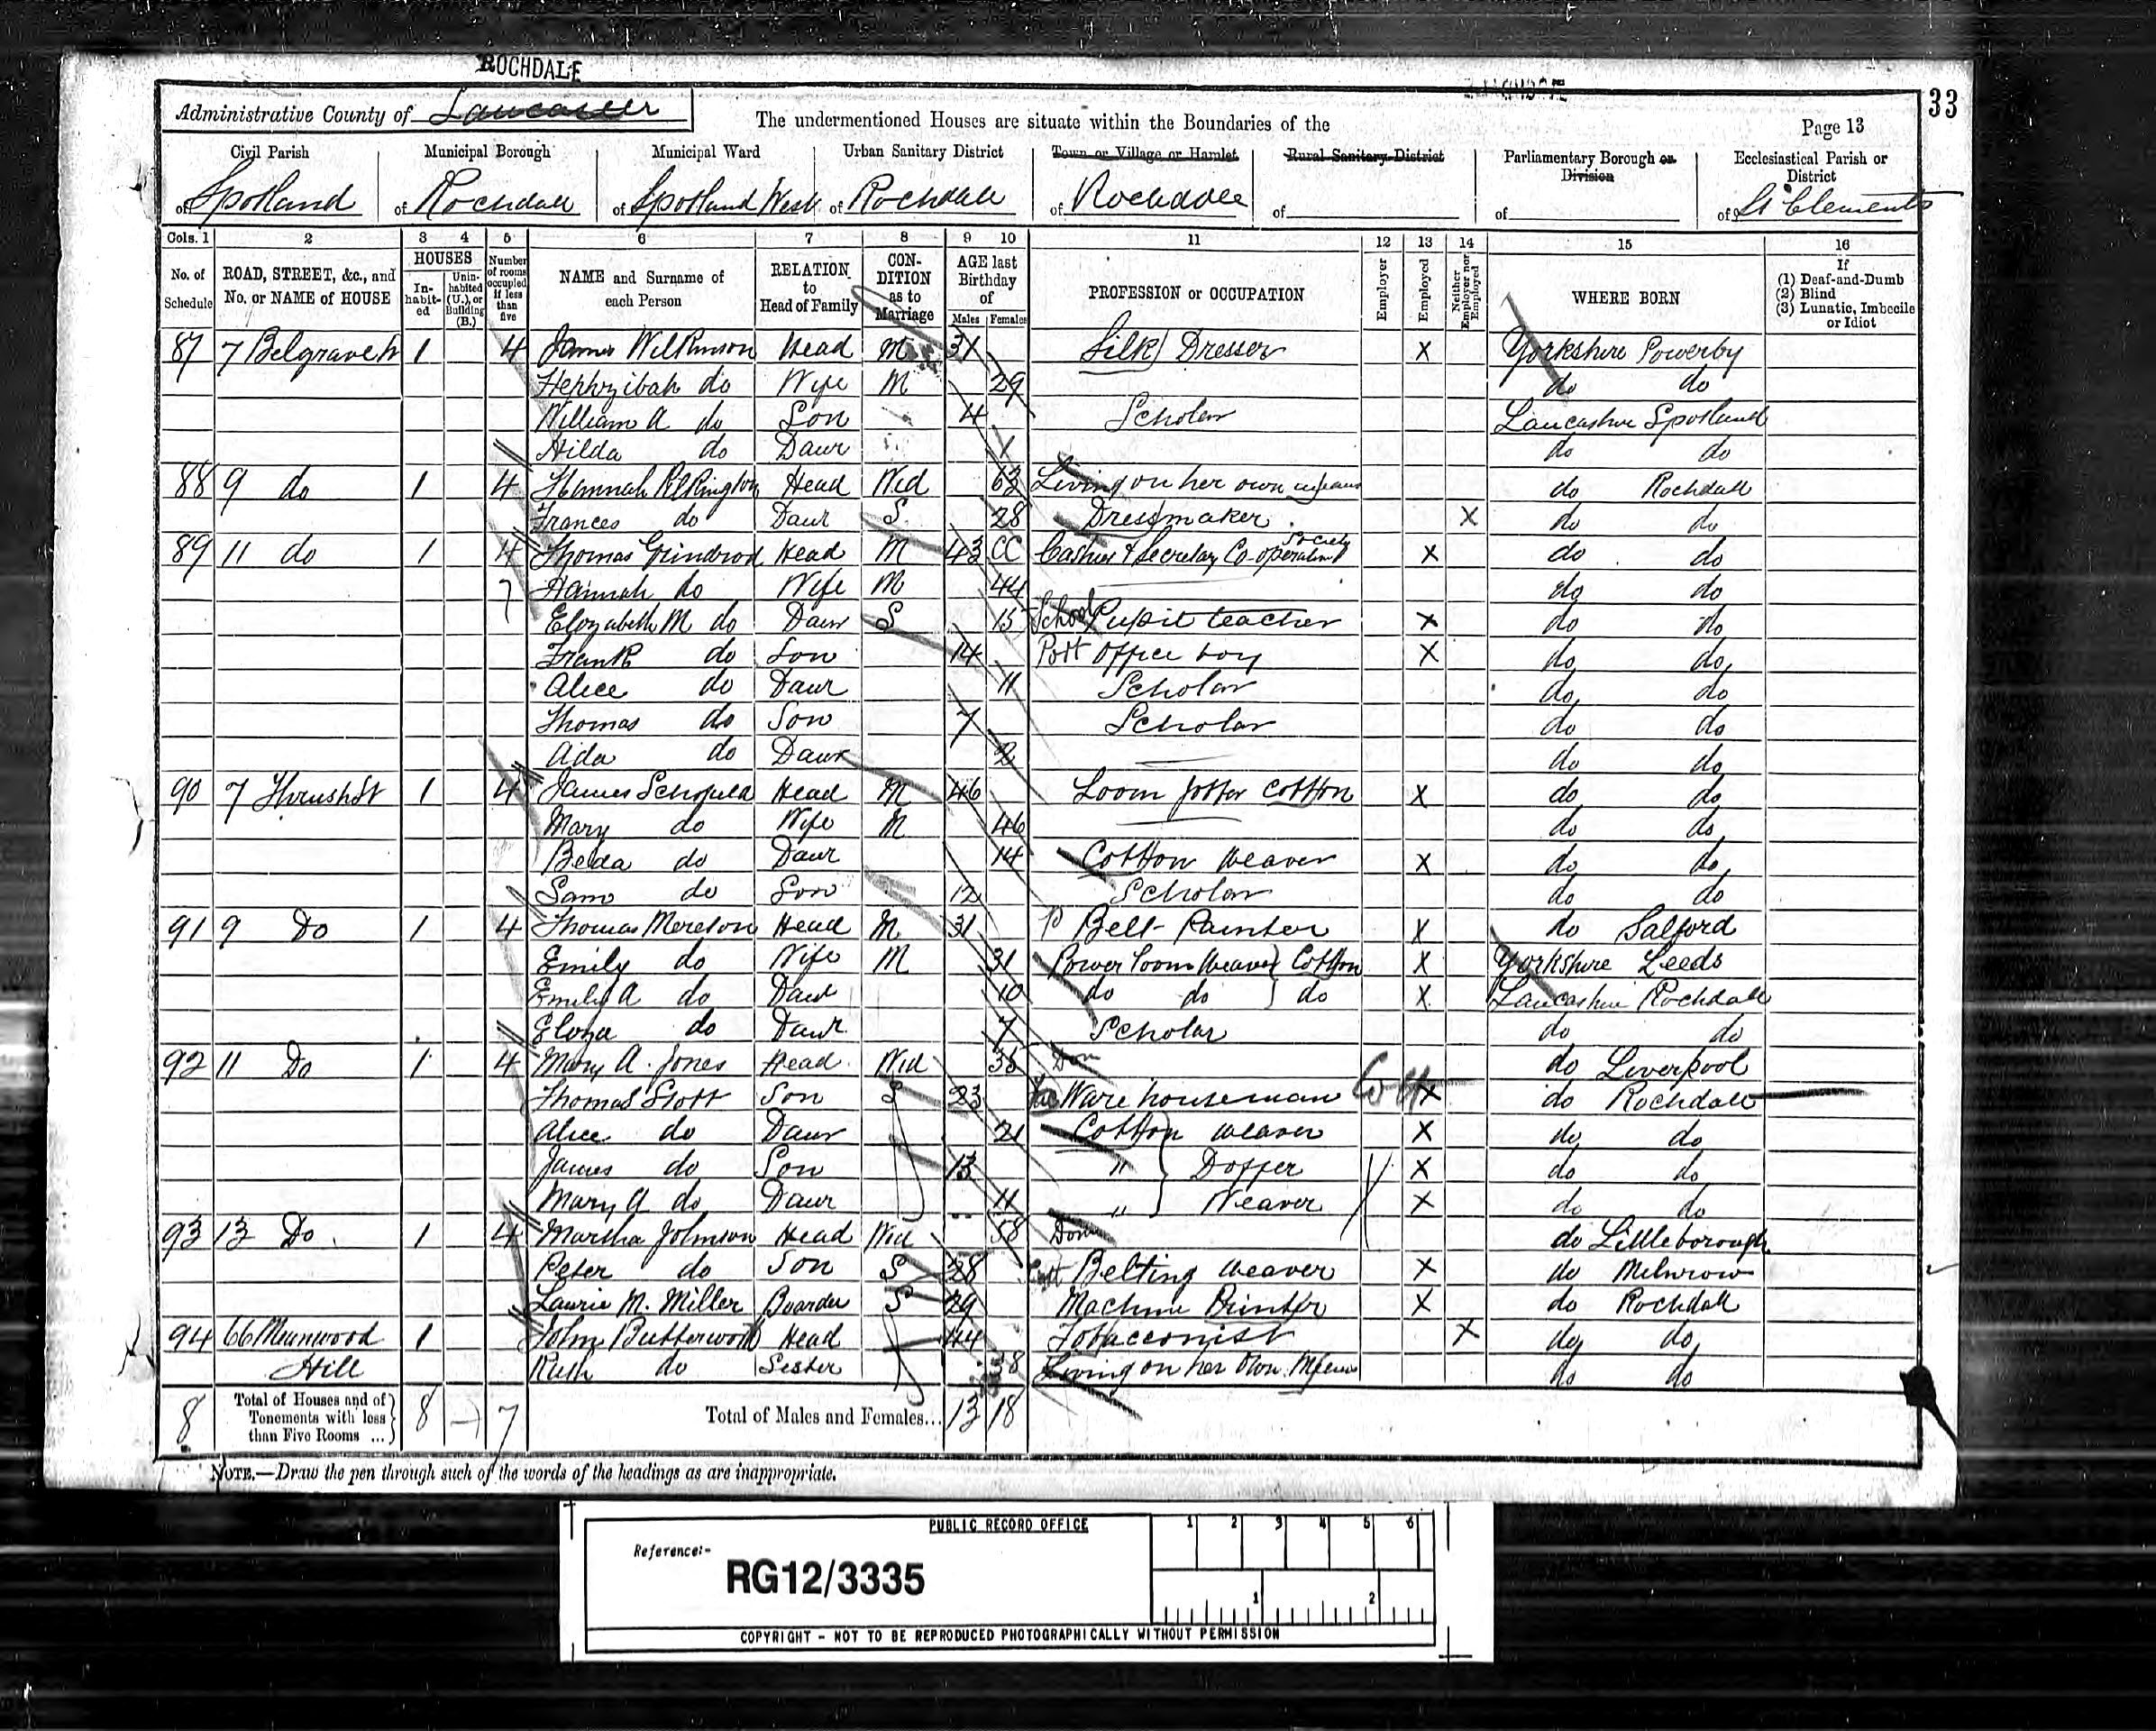 ROCHDALE
33
Administrative County of Lancaster
The undermentioned Houses are situate within the Boundaries of the
Page 13
Civil Parish Municipal Borough Municipal Ward Urban Sanitary District Town or Village or Hamlet Rural Sanitary District Parliamentary Borough or Division Ecclesiastical Parish or District
of Spotland of Rochdale of Spotland West of Rochdale of Rochdale of of of St Clements
Cols. 1 2 3 4 5 6 7 8 9 10 11 12 13 14 15 16
No. of Schedule ROAD, STREET, &c., and No. or NAME of HOUSE HOUSES Inhabited Uninhabited (U.), or Building (B.) Number of rooms occupied if less than five NAME and Surname of each Person RELATION to Head of Family CONDITION as to Marriage AGE last Birthday of Males Females PROFESSION or OCCUPATION Employer Employed Neither Employer nor Employed WHERE BORN If (1) Deaf-and-Dumb (2) Blind (3) Lunatic, Imbecile or Idiot
87 7 Belgrave St 1 4 James Wilkinson Head M 31 Silk Dresser X Yorkshire Sowerby
Hephzibah do Wife M 29 do do
William A do Son 4 Scholar Lancashire Spotland
Hilda do Daur 1 do do
88 9 do 1 4 Hannah Pilkington Head Wid 63 Living on her own means do Rochdale
Frances do Daur S 28 Dressmaker X do do
89 11 do 1 4 Thomas Grindrod Head M 43 CC Cashier & Secretary Co-operative Society X do do
7 Hannah do Wife M 44 do do
Elizabeth M do Daur S 15 School Pupil teacher X do do
Frank do Son 14 Post Office boy X do do
Alice do Daur 11 Scholar do do
Thomas do Son 7 Scholar do do
Ada do Daur 2 do do
90 7 Thrush St 1 4 James Schofield Head M 46 Loom Jobber Cotton X do do
Mary do Wife M 46 do do
Daur 14 Cotton Weaver X do do
Sam do Son 12 Scholar do do
91 9 Do 1 4 Thomas Moreton Head M 31 P Belt Painter X do Salford
Emily do Wife M 31 Power Loom Weaver Cotton X Yorkshire Leeds
Emily A do Daur 10 do do do X Lancashire Rochdale
Eliza do Daur 7 Scholar do do
92 11 Do 1 4 Mary A. Jones Head Wid Dom do Liverpool
Thomas Stott Son S 23 Ware houseman Cott X do Rochdale
Alice do Daur 21 Cotton weaver X do do
James do Son 13 " Doffer X do do
Mary A do Daur 11 " Weaver X do do
93 13 Do 1 4 Martha Johnson Head Wid 58 Dom do Littleborough
Peter do Son S 28 Cott Belting weaver X do Milnrow
Laurie M. Miller Boarder S 29 Machine Printer X do Rochdale
94 66 Meanwood Hill 1 John Butterworth Head 44 Tobacconist X do do
Ruth do Sister 38 Living on her Own Means do do
8 Total of Houses and of Tenements with less than Five Rooms ... 8 7 Total of Males and Females... 13 18
NOTE.—Draw the pen through such of the words of the headings as are inappropriate.
PUBLIC RECORD OFFICE
1 2 3 4 5 6
Reference:-
RG12/3335
1 2
COPYRIGHT - NOT TO BE REPRODUCED PHOTOGRAPHICALLY WITHOUT PERMISSION